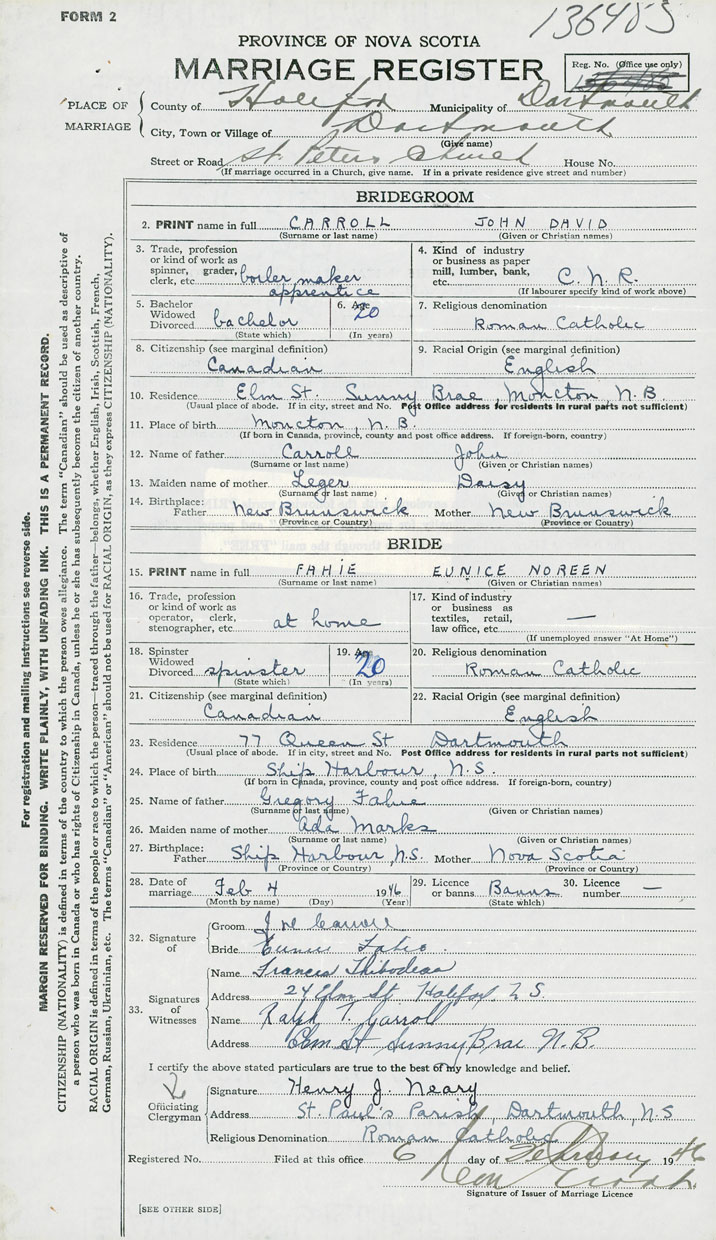 FORM 2
136483
PROVINCE OF NOVA SCOTIA
MARRIAGE REGISTER
Reg. No. (Office use only)
PLACE OF MARRIAGE
County of Halifax Municipality of Dartmouth
City, Town or Village of Dartmouth
(Give name)
Street or Road St. Peters Church House No.
(If marriage occurred in a Church, give name. If in a private residence give street and number)
BRIDEGROOM
2. PRINT name in full CARROLL JOHN DAVID
(Surname or last name) (Given or Christian names)
3. Trade, profession or kind of work as spinner, grader, clerk, etc. boiler maker apprentice
4. Kind of industry or business as paper mill, lumber, bank, etc. C.N.R.
(If labourer specify kind of work above)
5. Bachelor Widowed Divorced bachelor
(State which)
6. Age 20
(In years)
7. Religious denomination
Roman Catholic
8. Citizenship (see marginal definition)
Canadian
9. Racial Origin (see marginal definition)
English
10. Residence Elm St. Sunny Brae, Moncton, N.B.
(Usual place of abode. If in city, street and No. Post Office address for residents in rural parts not sufficient)
11. Place of birth Moncton, N.B.
(If born in Canada, province, county and post office address. If foreign-born, country)
12. Name of father Carroll John
(Surname or last name) (Given or Christian names)
13. Maiden name of mother Leger Daisy
(Surname or last name) (Given or Christian names)
14. Birthplace: Father New Brunswick Mother New Brunswick
(Province or Country) (Province or Country)
BRIDE
15. PRINT name in full FAHIE EUNICE NOREEN
(Surname or last name) (Given or Christian names)
16. Trade, profession or kind of work as operator, clerk, stenographer, etc. at home
17. Kind of industry or business as textiles, retail, law office, etc. —
(If unemployed answer "At Home")
18. Spinster Widowed Divorced spinster
(State which)
19. Age 20
(In years)
20. Religious denomination
Roman Catholic
21. Citizenship (see marginal definition)
Canadian
22. Racial Origin (see marginal definition)
English
23. Residence 77 Queen St Dartmouth
(Usual place of abode. If in city, street and No. Post Office address for residents in rural parts not sufficient)
24. Place of birth Ship Harbour, N.S.
(If born in Canada, province, county and post office address. If foreign-born, country)
25. Name of father Gregory Fahie
(Surname or last name) (Given or Christian names)
26. Maiden name of mother Ada Marks
(Surname or last name) (Given or Christian names)
27. Birthplace: Father Ship Harbour, N.S. Mother Nova Scotia
(Province or Country) (Province or Country)
28. Date of marriage Feb 4 1946
(Month by name) (Day) (Year)
29. Licence or banns Banns
(State which)
30. Licence number —
32. Signature of
Groom J Carroll
Bride Eunice Fahie
33. Signatures of Witnesses
Name Francis Thibodeau
Address 24 Elm St Halifax N.S.
Name Ralph T. Carroll
Address Elm St Sunny Brae N.B.
I certify the above stated particulars are true to the best of my knowledge and belief.
Officiating Clergyman
Signature Henry J. Neary
Address St. Paul's Parish, Dartmouth, N.S
Religious Denomination Roman Catholic
Registered No. Filed at this office 6 day of February 1946
Signature of Issuer of Marriage Licence
[SEE OTHER SIDE]
For registration and mailing instructions see reverse side.
MARGIN RESERVED FOR BINDING. WRITE PLAINLY, WITH UNFADING INK. THIS IS A PERMANENT RECORD.
CITIZENSHIP (NATIONALITY) is defined in terms of the country to which the person owes allegiance. The term "Canadian" should be used as descriptive of
a person who was born in Canada or who has rights of Citizenship in Canada, unless he or she has subsequently become the citizen of another country.
RACIAL ORIGIN is defined in terms of the people or race to which the person—traced through the father—belongs, whether English, Irish, Scottish, French,
German, Russian, Ukrainian, etc. The terms "Canadian" or "American" should not be used for RACIAL ORIGIN, as they express CITIZENSHIP (NATIONALITY).